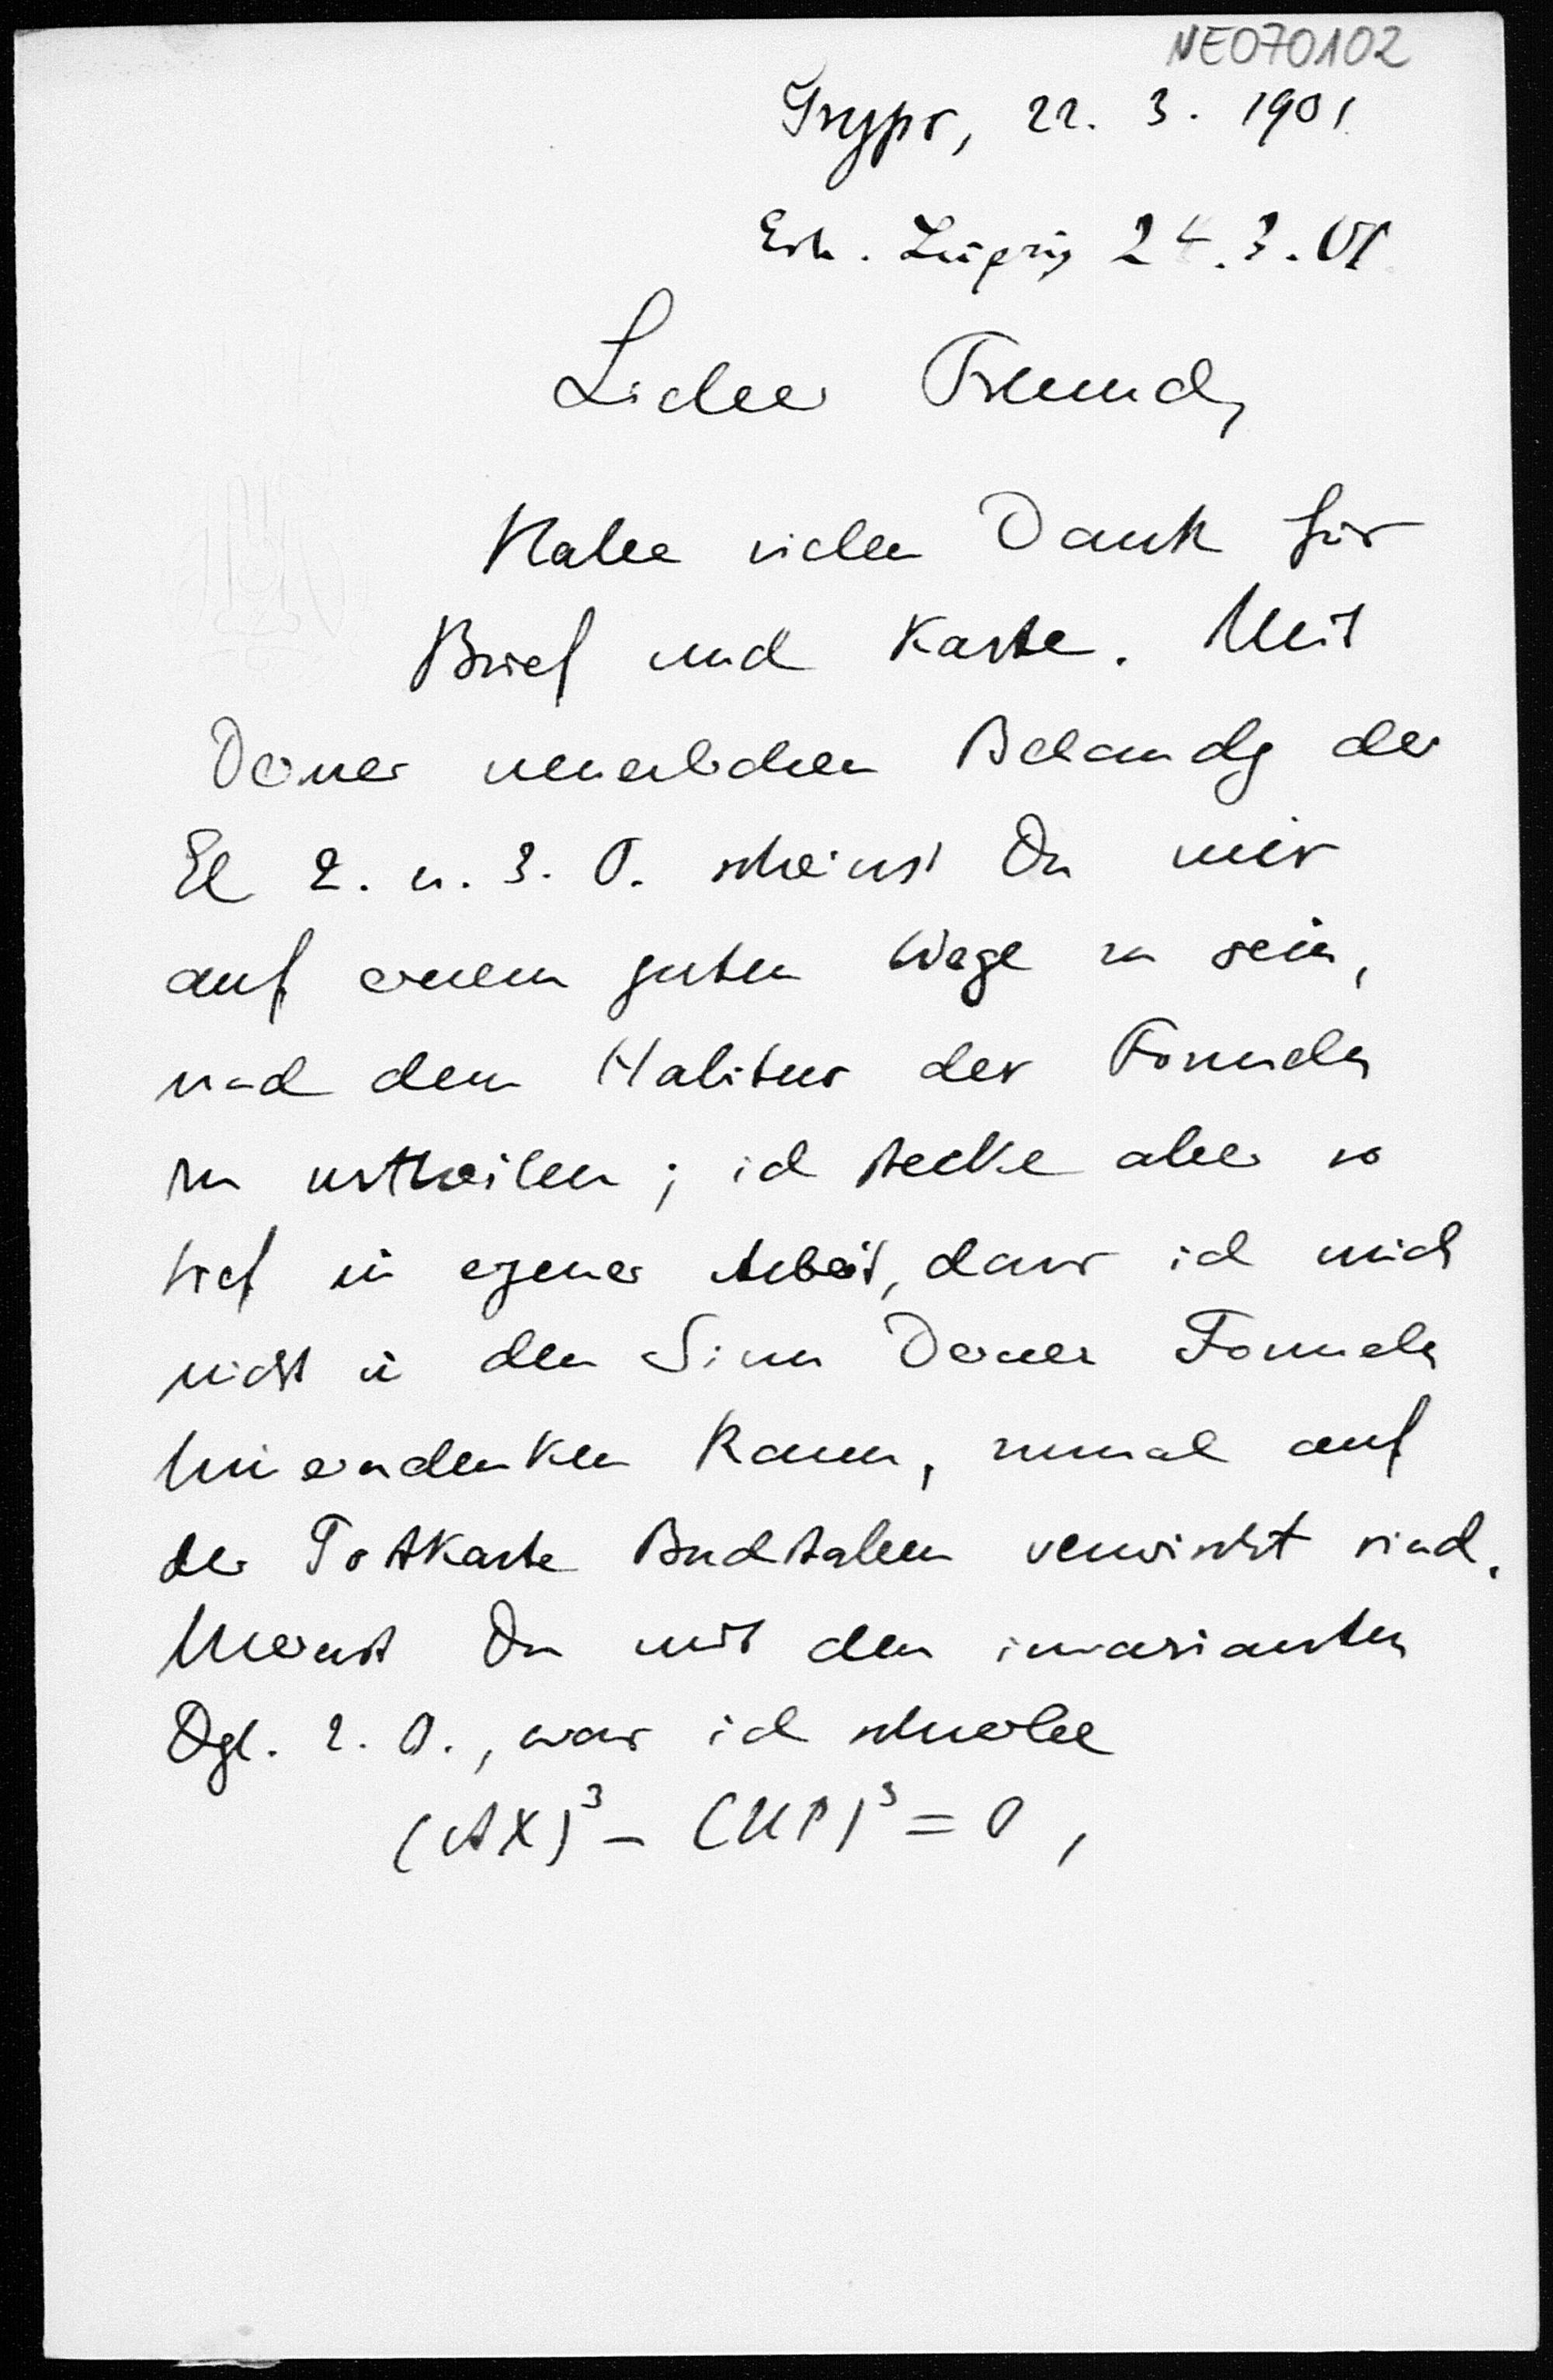 NE070102
Gryps, 22. 3. 1901
Erh. Leipzig 24.3.01
Lieber Freund,
Habe vielen Dank für
Brief und Karte. Mit
Deiner neuerlichen Behandlg der
El 2. u. 3. O. scheinst Du mir
auf einem guten Wege zu sein,
nach dem Habitus der Formeln
zu urtheilen; ich stecke aber so
tief in eigener Arbeit, dass ich mich
nicht in den Sinn Deiner Formeln
hineindenken kann, zumal auf
der Postkarte Buchstaben verwischt sind.
Meinst Du mit den invarianten
Dgl. 2. O., was ich schreibe
(AX)³ - (UP)³ = 0,